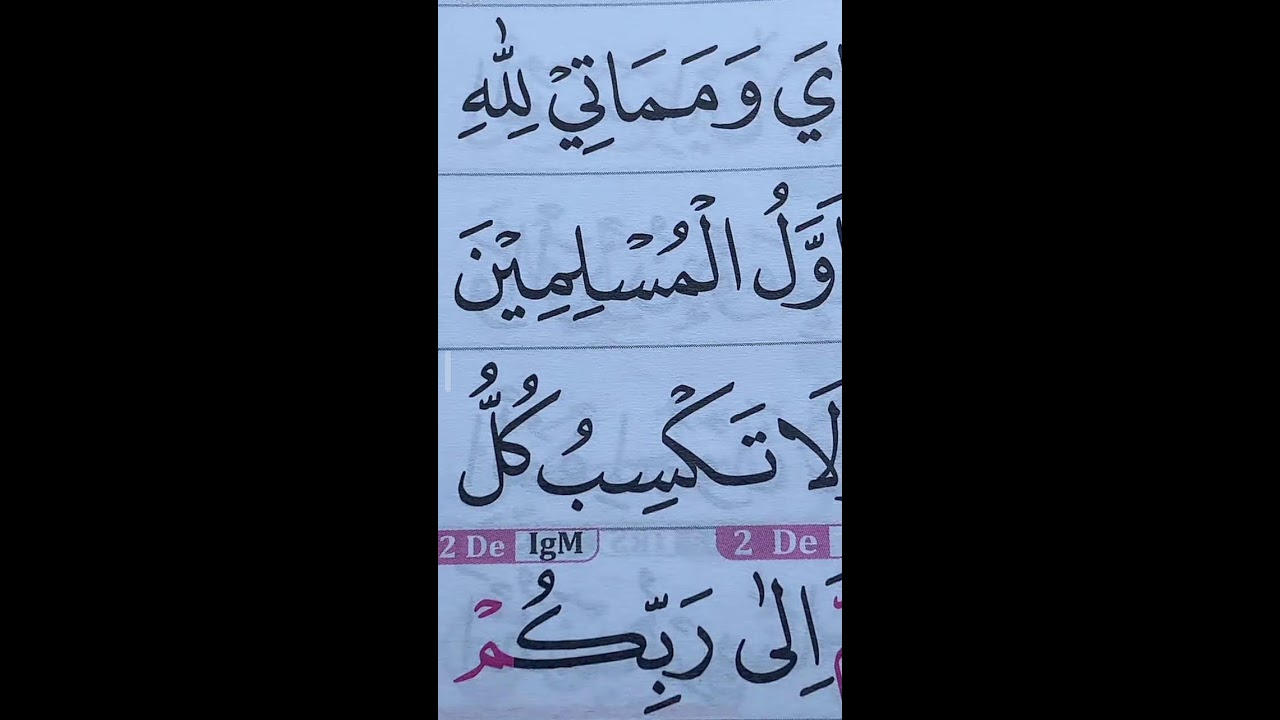 يَ وَ مَمَاتِيْ لِلّٰهِ
اَوَّلُ الْمُسْلِمِيْنَ
لَا تَكْسِبُ كُلُّ
2 De IgM 2 De
اِلٰى رَبِّكُمْ